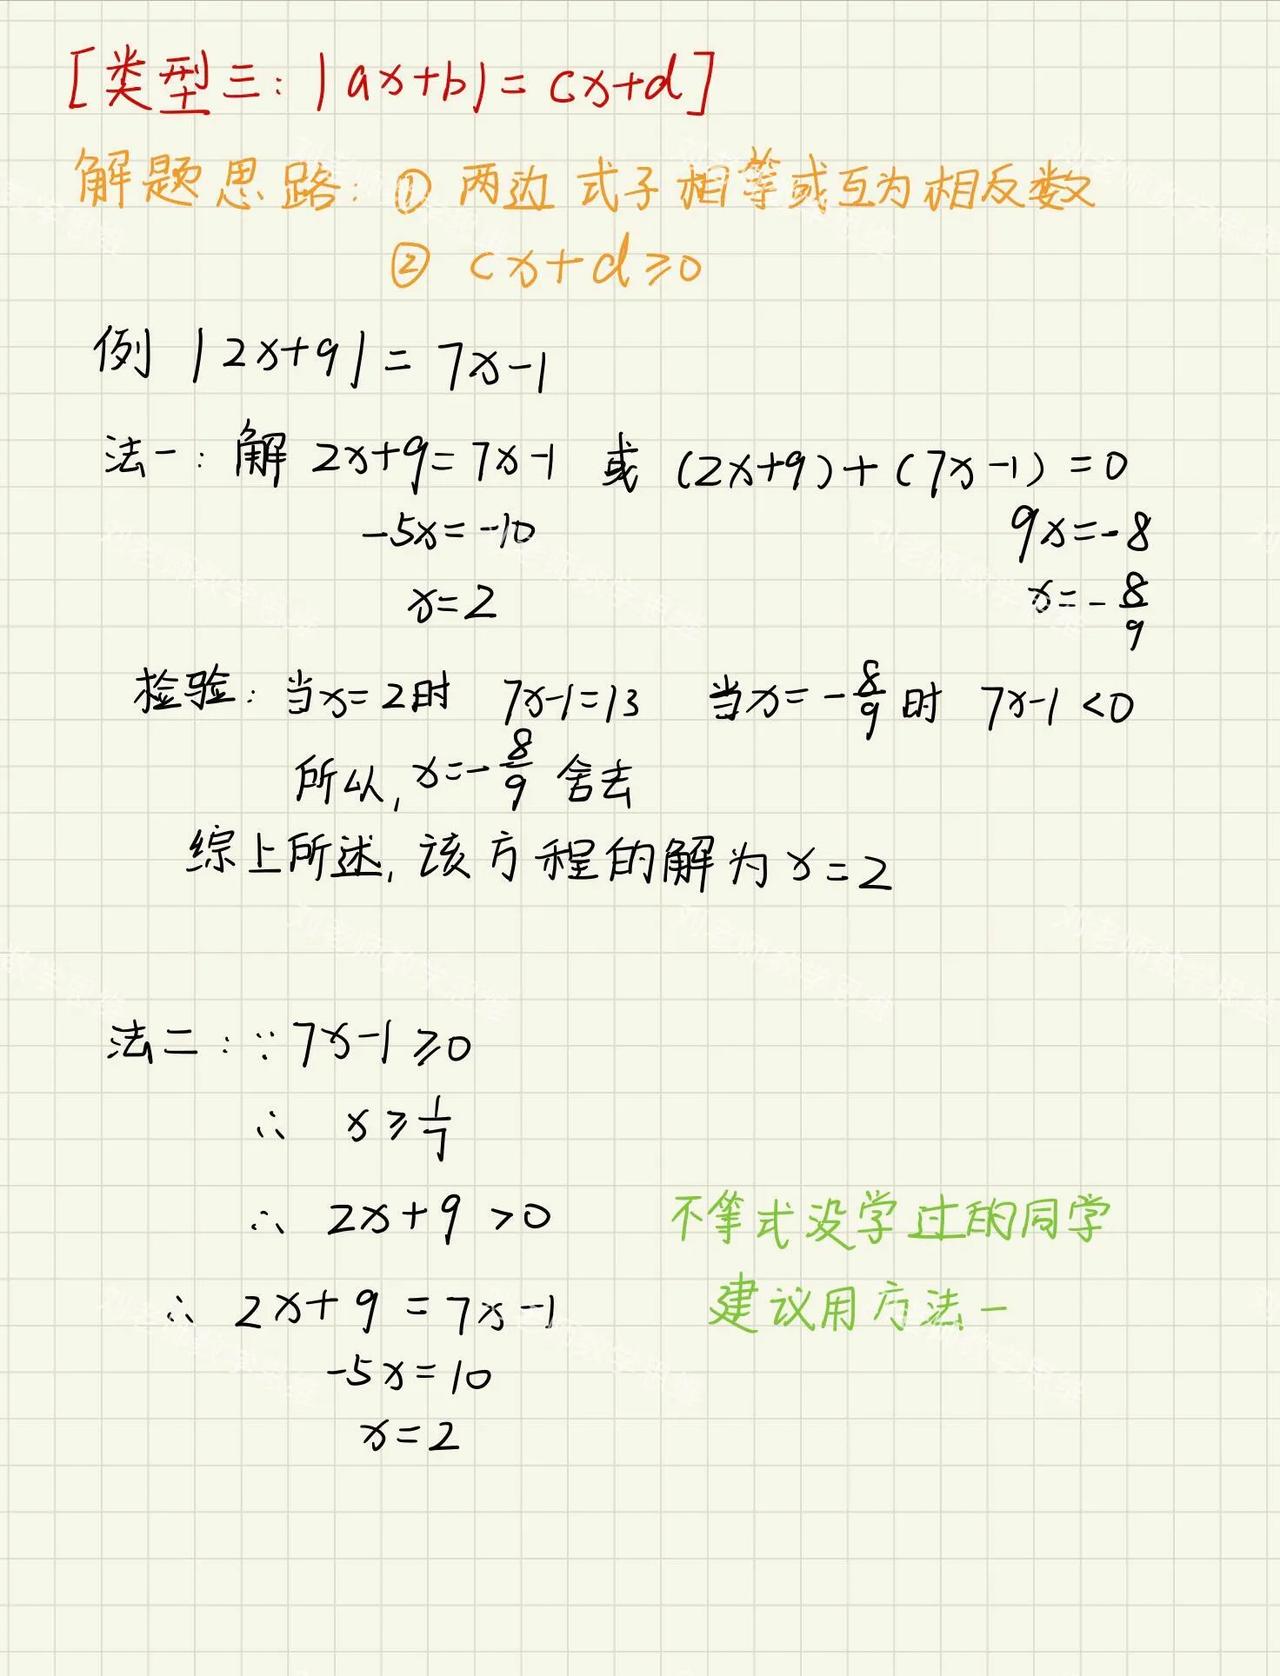 [类型三：|ax+b|=cx+d]
解题思路：① 两边式子相等或互为相反数
② cx+d≥0
例 |2x+9|=7x-1
法一：解 2x+9=7x-1 或 (2x+9)+(7x-1)=0
-5x=-10 9x=-8
x=2 x=-8/9
检验：当x=2时 7x-1=13 当x=-8/9时 7x-1<0
所以,x=-8/9 舍去
综上所述,该方程的解为x=2
法二：∵7x-1≥0
∴ x≥1/7
∴ 2x+9>0 不等式没学过的同学
∴ 2x+9=7x-1 建议用方法一
-5x=10
x=2